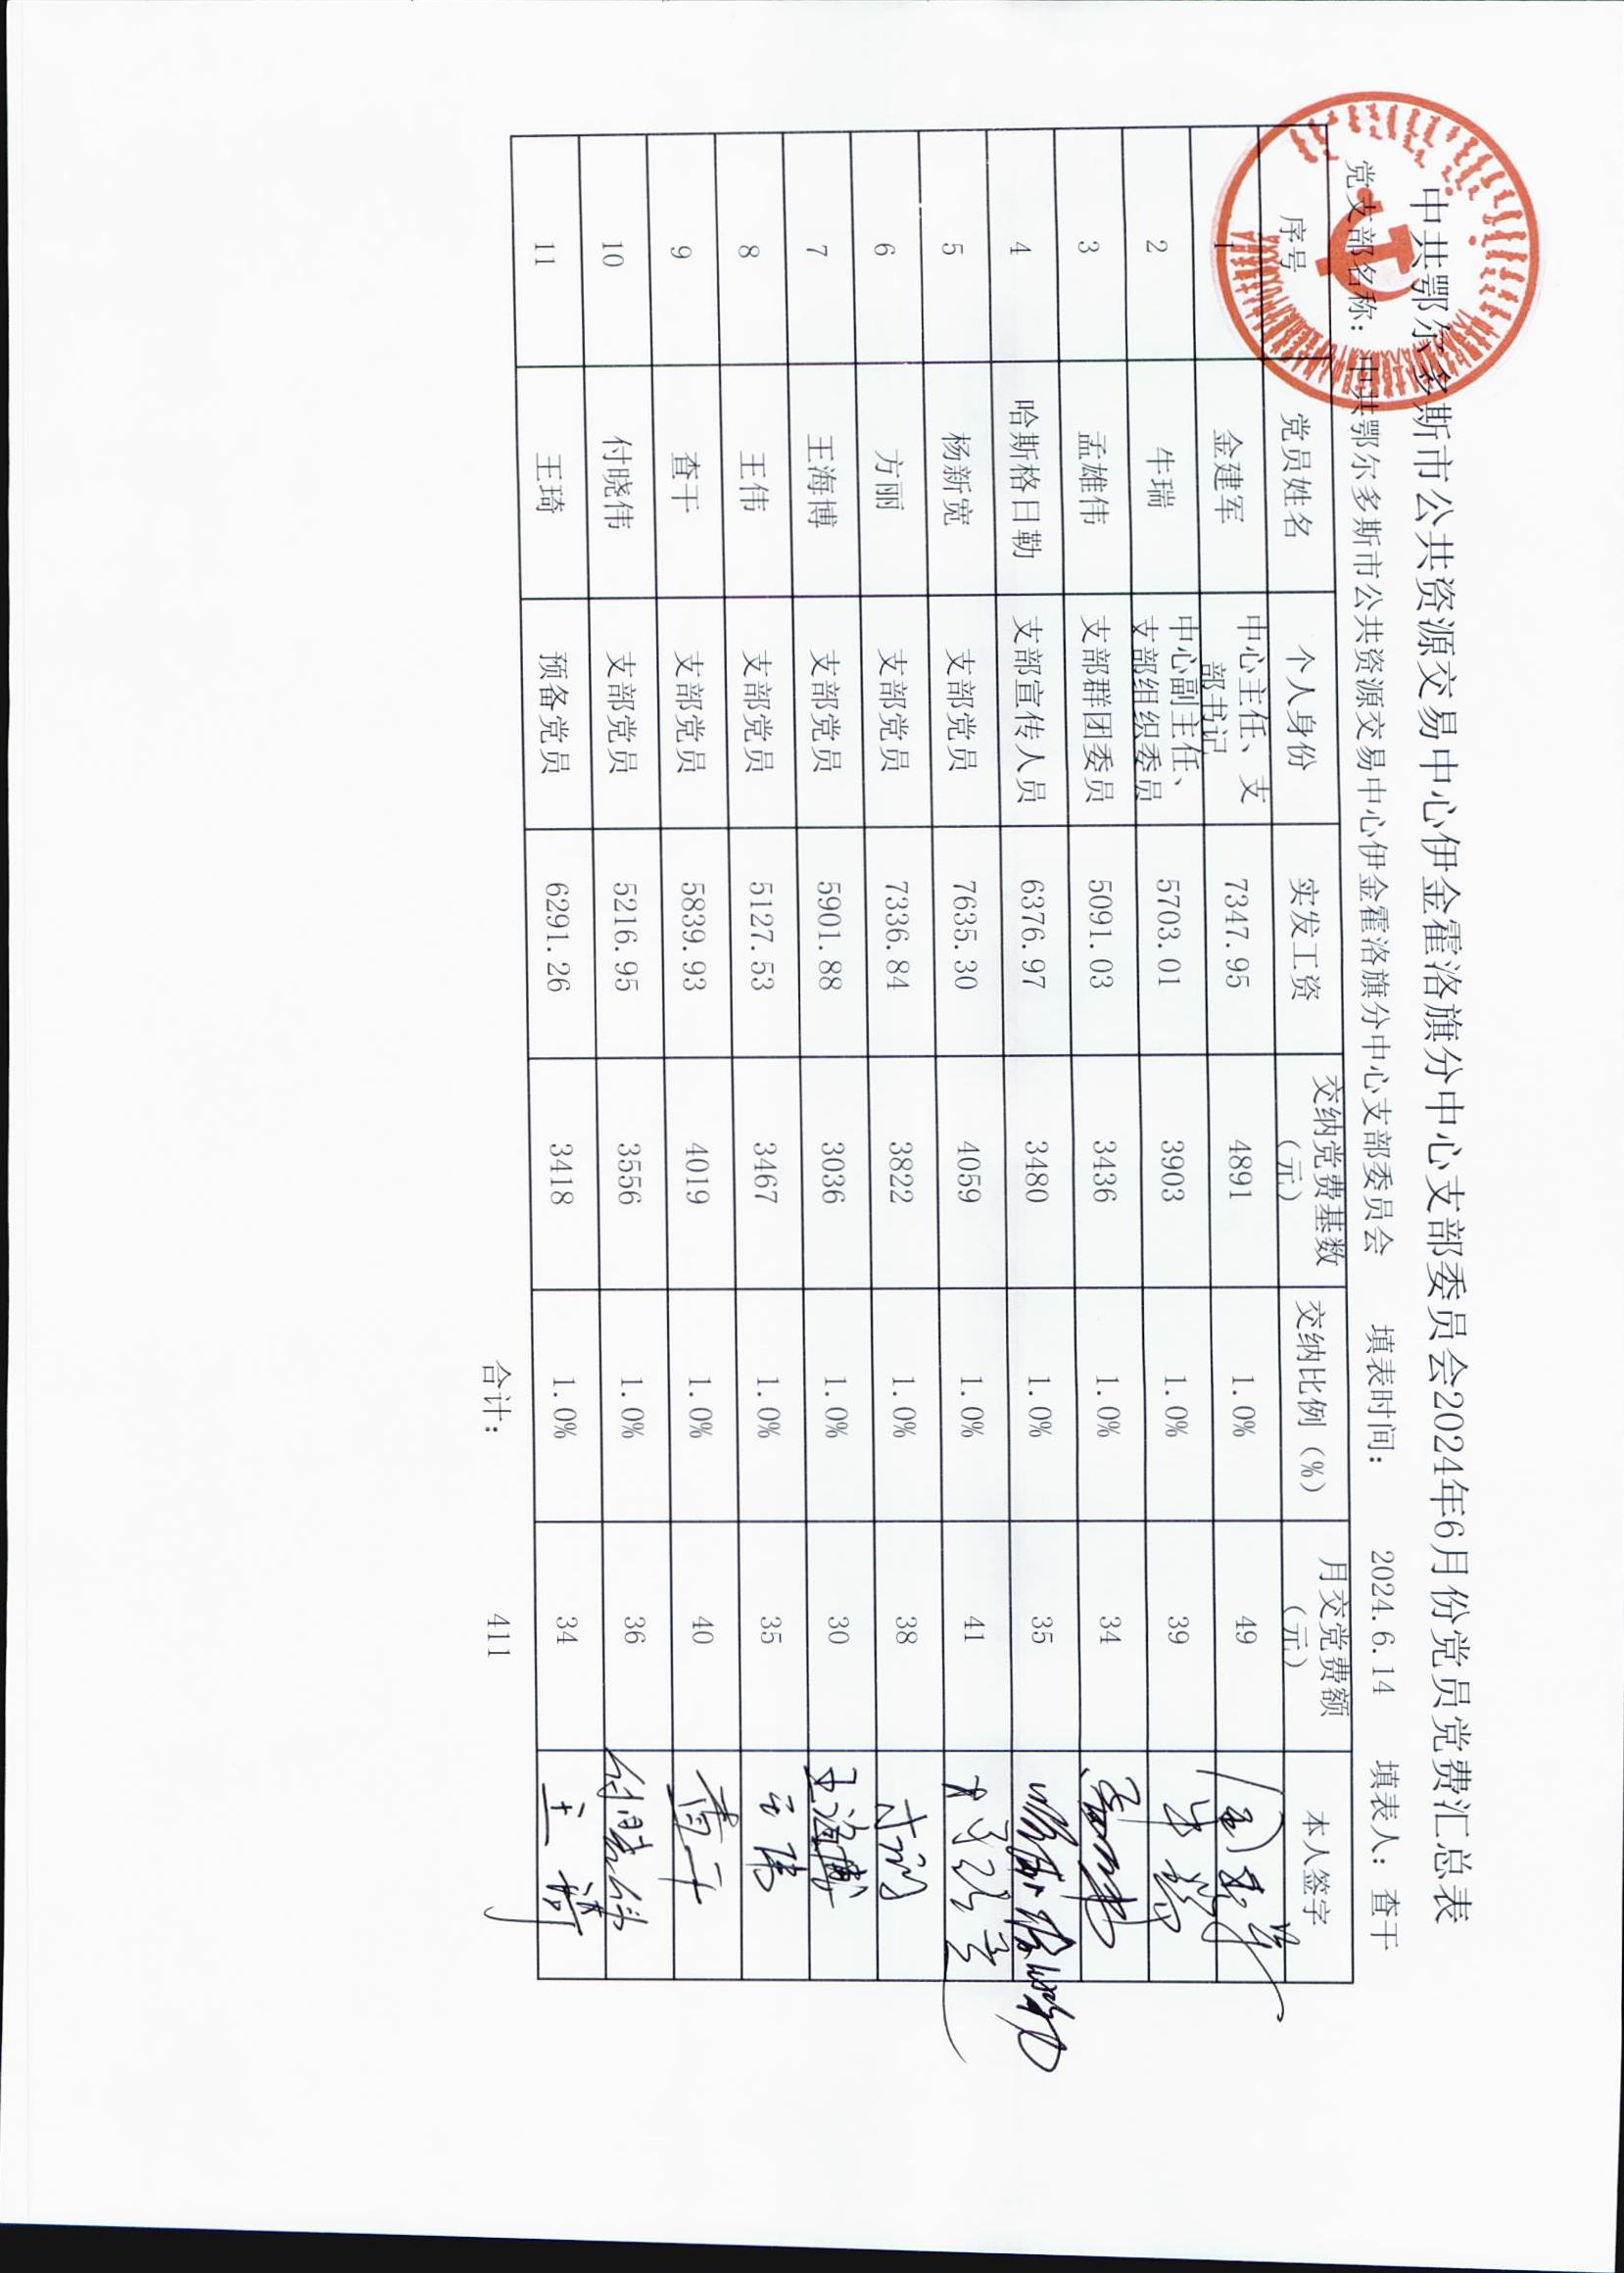 中共鄂尔多斯市公共资源交易中心伊金霍洛旗分中心支部委员会2024年6月份党员党费汇总表
党支部名称： 中共鄂尔多斯市公共资源交易中心伊金霍洛旗分中心支部委员会 填表时间： 2024.6.14 填表人： 查干
序号 党员姓名 个人身份 实发工资 交纳党费基数（元） 交纳比例（%） 月交党费额（元） 本人签字
1 金建军 中心主任、支部书记 7347.95 4891 1.0% 49 金建军
2 牛瑞 中心副主任、支部组织委员 5703.01 3903 1.0% 39 牛瑞
3 孟雄伟 支部群团委员 5091.03 3436 1.0% 34
4 哈斯格日勒 支部宣传人员 6376.97 3480 1.0% 35 哈斯格日勒
5 杨新宽 支部党员 7635.30 4059 1.0% 41 杨新宽
6 方丽 支部党员 7336.84 3822 1.0% 38 方丽
7 王海博 支部党员 5901.88 3036 1.0% 30 王海博
8 王伟 支部党员 5127.53 3467 1.0% 35 王伟
9 查干 支部党员 5839.93 4019 1.0% 40 查干
10 付晓伟 支部党员 5216.95 3556 1.0% 36 付晓伟
11 王琦 预备党员 6291.26 3418 1.0% 34 王琦
合计： 411